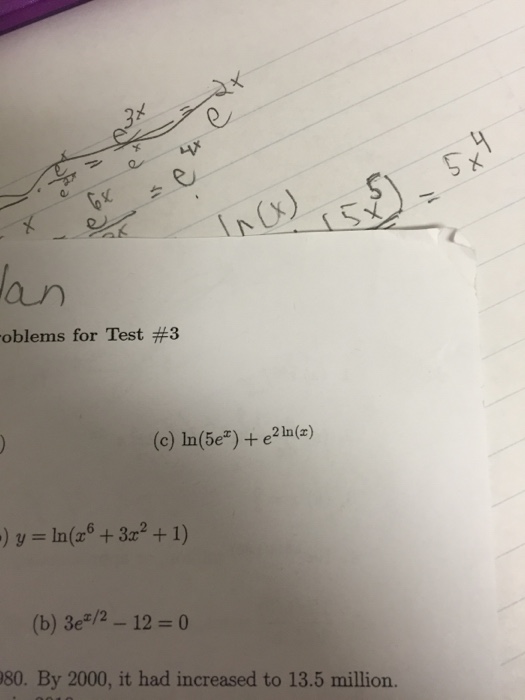 e^{3x}/e^x = e^{2x}
e^{6x} = e^{4x}
ln(x) (5x^5) = 5x^4
lan
oblems for Test #3
) (c) ln(5e^x) + e^{2 ln(x)}
) y = ln(x^6 + 3x^2 + 1)
(b) 3e^{x/2} − 12 = 0
980. By 2000, it had increased to 13.5 million.